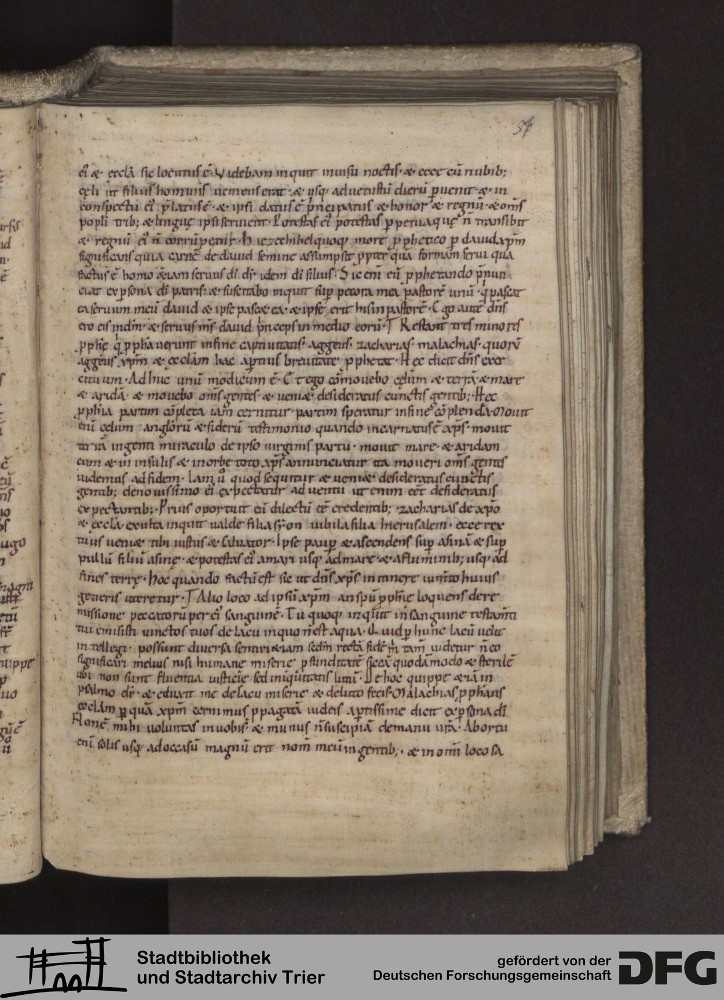 54
ei᾽ & eccła sic locutus ē. Videbam inquit in uisu noctis. & ecce cū nubib;
cęli ut filius hominis ueniens erat. & usq; ad uetustū dierū puenit. & in
conspectu ei᾽ platus ē. & ipsi datus ē principatus & honor & regnū. & oms
popli trib; & linguę ipsi seruient. Potestas ei᾽ potestas ppetua quę n̄ transibit
& regnū ei᾽ n̄ corrūpetur. Hiezechihel quoq; more pphetico p dauid xpm
significans quia carnē de dauid semine assumpsit ppter quā formam serui qua
factus ē homo etiam seruus di dr. idem di filius. Sic eni eū pphetando pnun
ciat ex psona di patris. & suscitabo inquit sup pecora mea pastorē unū. q pascat
ea seruum meū dauid & ipse pascet ea. & ipse erit his in pastorē. Ego aut dns
ero eis in dm. & seruus ms dauid princeps in medio eorū. Restant tres minores
pphę q pphauerunt in fine captiuitatis. aggeus. zacharias. malachias. quorū
aggeus xpm & ecclam hac aptius breuitate pphetat. Hęc dicit dns exer
cituum. Adhuc unū modicum ē. Et ego cōmouebo cęlum & terrā & mare
& aridā. & mouebo oms gentes & ueniet desideratus cunctis gentib; Hęc
pphia partim cōpleta iam cernitur partim speratur in fine cōplenda. Mouit
eni cęlum anglorū & siderū testimonio quando incarnatus ē xps. mouit
terrā ingenti miraculo de ipso uirginis partu. mouit mare & aridam
cum & in insulis & in orbe toto xps annunciatur ita moueri oms gentes
uidemus ad fidem. Iam u quod sequitur & ueniet desideratus cunctis
gentib; de nouissimo ei᾽ expectatur aduentu ut enim eēt desideratus
expectantib; Prius oportuit eū dilectū eē credentib; zacharias de xpo
& eccla exulta inquit ualde filia syon iubila filia hierusalem. ecce rex
tuus ueniet tibi iustus & saluator. Ipse paup & ascendens sup asinā & sup
pullū filiū asinę. & potestas ei᾽ a mari usq; ad mare & a fluminib; usq; ad
fines terrę. Hoc quando factū est sic ut dns xps in itinere iumto huius
generis uteretur. Alio loco ad ipsū xpm in spu pphię loquens de re
missione peccatorū per ei᾽ sanguinē. Tu quoq; inquit in sanguine testamti
tui emisisti uinctos tuos de lacu in quo n est aqua. Quid p hunc lacū uelit
intellegi. possunt diuersa sentiri etiam scdm rectā fidē. m tam uidetur n eo
significari melius nisi humanę miserię pfunditatē siccā quodāmodo & sterilē
ubi non sunt fluenta iusticię sed iniquitatis lutū. De hoc quippe etiā in
psalmo dr. & eduxit me de lacu miserię & de luto fecis. Malachias pphans
ecclam quā p xpm cernimus ppagatā iudeis aptissime dicit ex psona di.
Non ē mihi uoluntas in uobis. & munus n suscipiā de manu ura. Ab ortu
eni solis usq; ad occasū magnū erit nom meū in gentib; & in omi loco sa
Stadtbibliothek
und Stadtarchiv Trier
gefördert von der
Deutschen Forschungsgemeinschaft
DFG